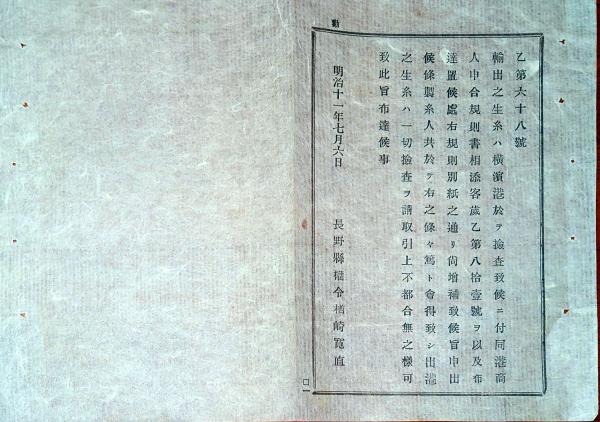 乙第六十八號
輸出之生糸ハ橫濱港於テ撿査致候ニ付同港商
人申合規則書相添客歲乙第八拾壹號ヲ以及布
達置候處右規則別紙之通リ尙增補致候旨申出
候條製糸人共於テ右之條々篤ト會得致シ出港
之生糸ハ一切撿査ヲ請取引上不都合無之樣可
致此旨布達候事
明治十一年七月六日
長野縣權令楢崎寬直
勸